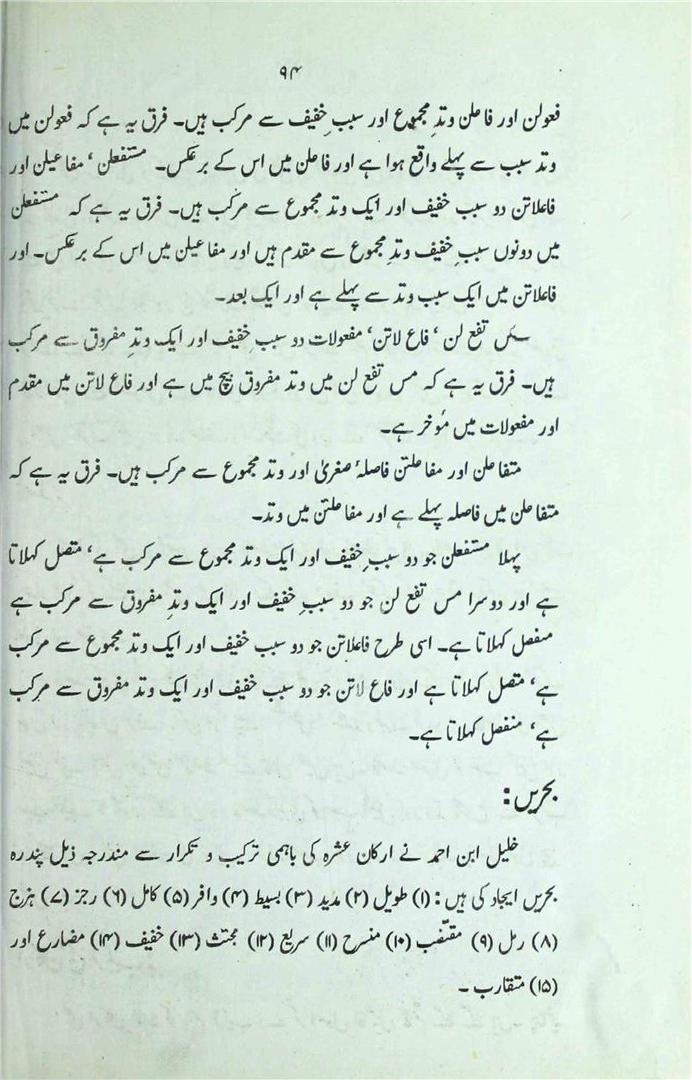 ۹۴
فعولن اور فاعلن وتدِ مجموع اور سببِ خفیف سے مرکب ہیں۔ فرق یہ ہے کہ فعولن میں
وتد سبب سے پہلے واقع ہوا ہے اور فاعلن میں اس کے برعکس۔ مستفعلن ‘ مفاعیلن اور
فاعلاتن دو سبب خفیف اور ایک وتد مجموع سے مرکب ہیں۔ فرق یہ ہے کہ مستفعلن
میں دونوں سببِ خفیف وتدِ مجموع سے مقدم ہیں اور مفاعیلن میں اس کے برعکس۔ اور
فاعلاتن میں ایک سبب وتد سے پہلے ہے اور ایک بعد۔
مس تفع لن ‘ فاع لاتن‘ مفعولات دو سببِ خفیف اور ایک وتدِ مفروق سے مرکب
ہیں۔ فرق یہ ہے کہ مس تفع لن میں وتد مفروق بیچ میں ہے اور فاع لاتن میں مقدم
اور مفعولات میں مؤخر ہے۔
متفاعلن اور مفاعلتن فاصلۂ صغریٰ اور وتد مجموع سے مرکب ہیں۔ فرق یہ ہے کہ
متفاعلن میں فاصلہ پہلے ہے اور مفاعلتن میں وتد۔
پہلا مستفعلن جو دو سببِ خفیف اور ایک وتد مجموع سے مرکب ہے‘ متصل کہلاتا
ہے اور دوسرا مس تفع لن جو دو سببِ خفیف اور ایک وتدِ مفروق سے مرکب ہے
منفصل کہلاتا ہے۔ اسی طرح فاعلاتن جو دو سبب خفیف اور ایک وتد مجموع سے مرکب
ہے‘ متصل کہلاتا ہے اور فاع لاتن جو دو سبب خفیف اور ایک وتد مفروق سے مرکب
ہے‘ منفصل کہلاتا ہے۔
بحریں:
خلیل ابن احمد نے ارکان عشرہ کی باہمی ترکیب و تکرار سے مندرجہ ذیل پندرہ
بحریں ایجاد کی ہیں: (۱) طویل (۲) مدید (۳) بسیط (۴) وافر (۵) کامل (۶) رجز (۷) ہزج
(۸) رمل (۹) مقتضب (۱۰) منسرح (۱۱) سریع (۱۲) مجتث (۱۳) خفیف (۱۴) مضارع اور
(۱۵) متقارب ۔